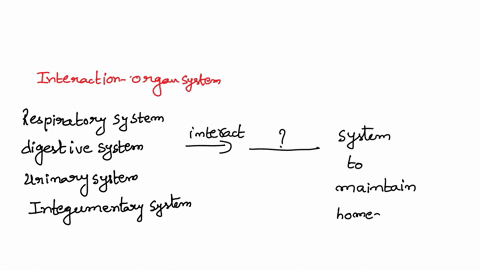 Interaction-organ system
Respiratory system
digestive system
Urinary system
Integumentary system
interact
?
system
to
maintain
home-